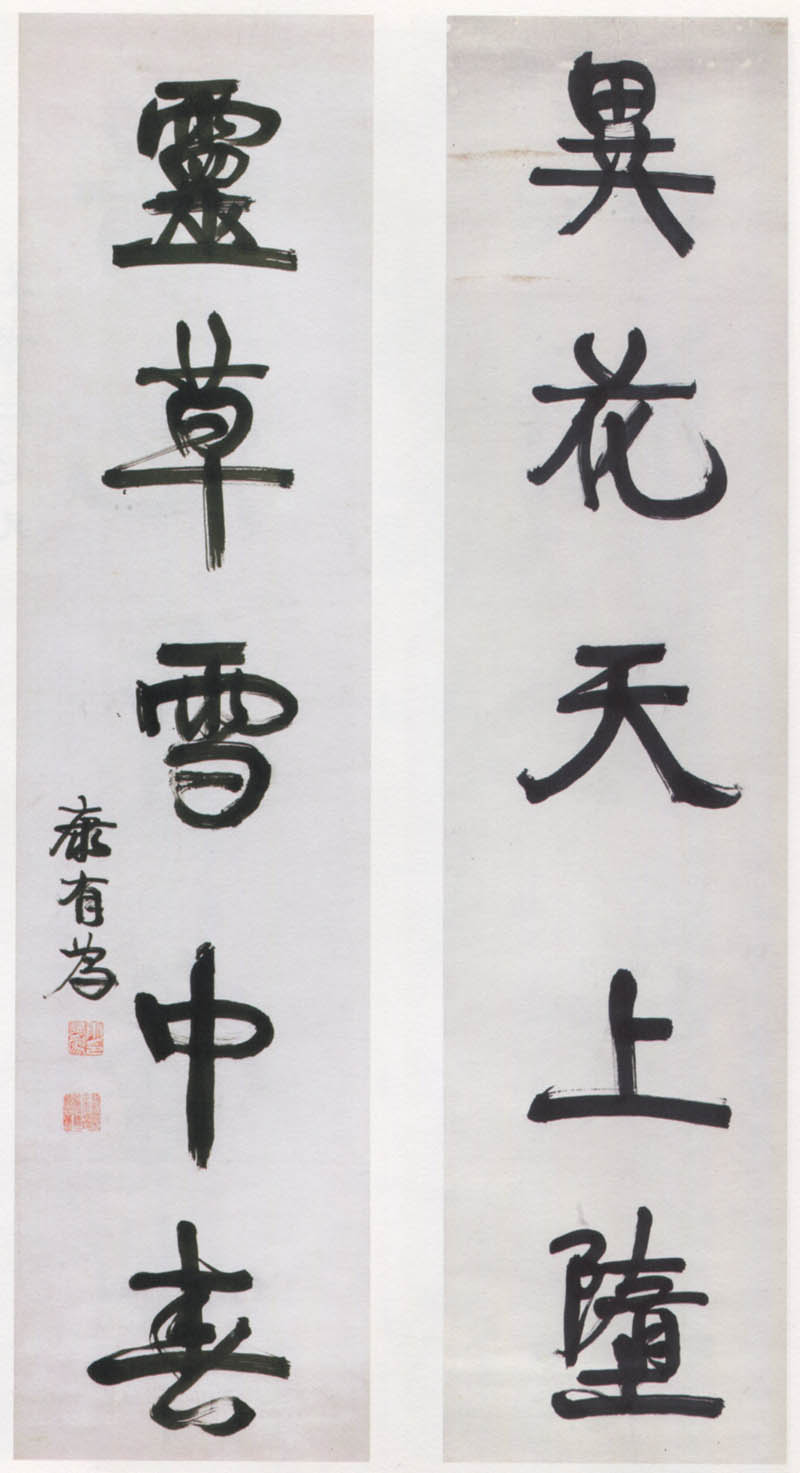 異花天上墮
靈草雪中春
康有為